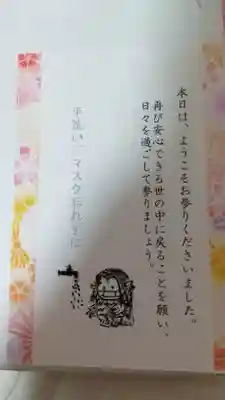 本日は、ようこそお参りくださいました。
再び安心できる世の中に戻ることを願い、
日々を過ごして参りましょう。
手洗い、マスクわすれずに